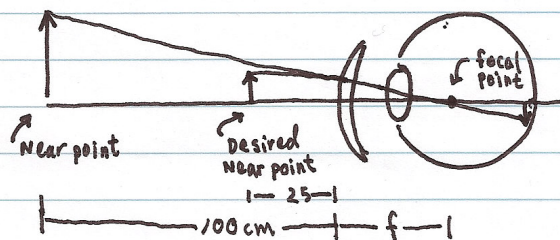 focal
point
Near point
Desired
Near point
25
100 cm
f